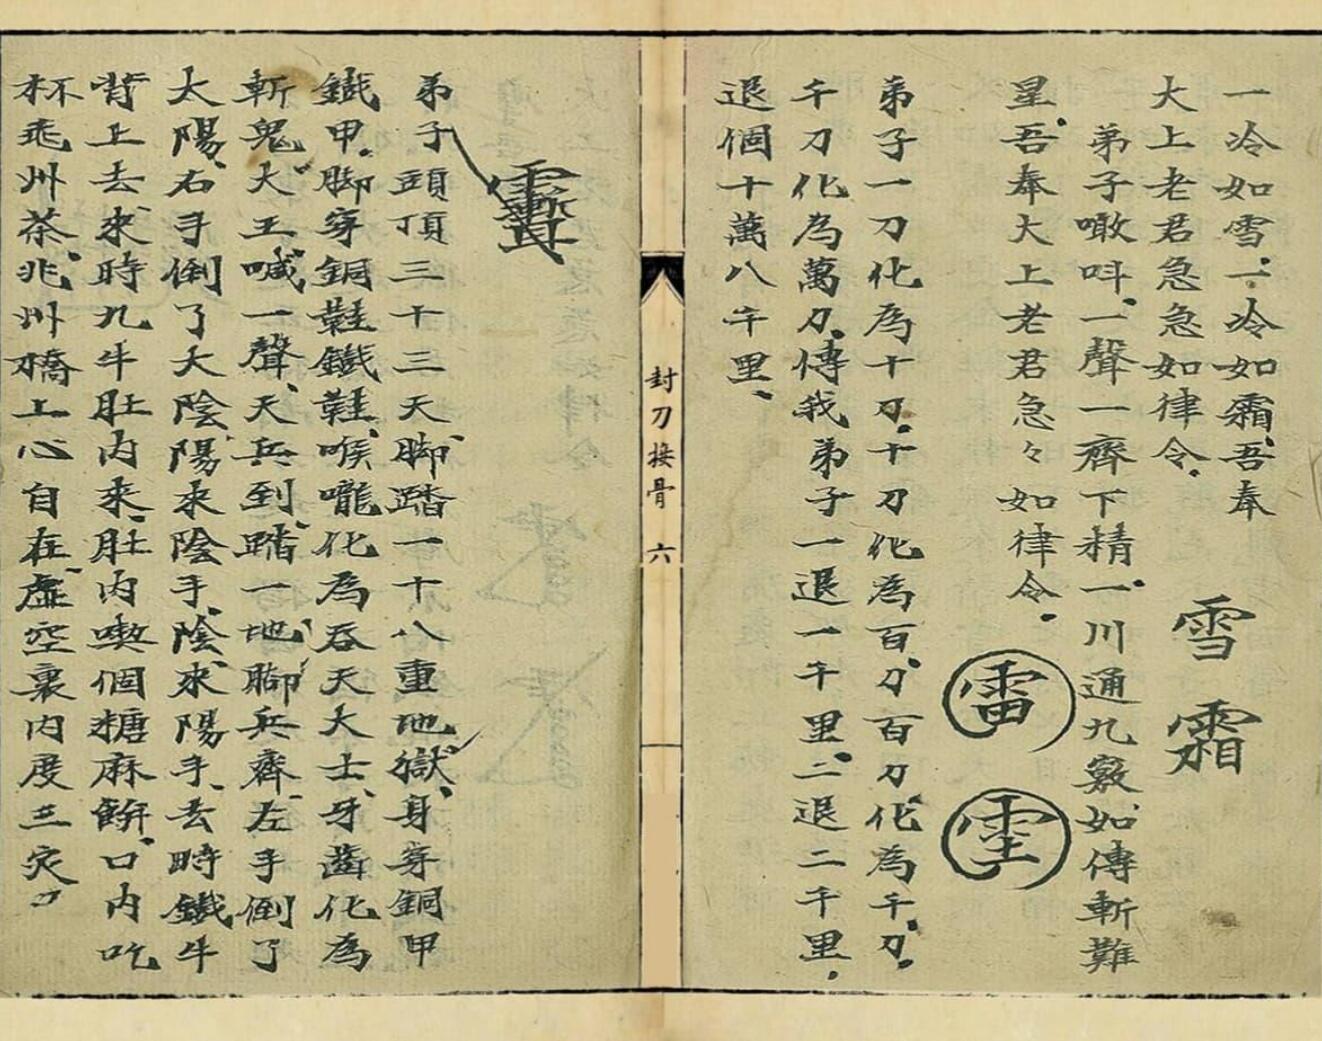 一冷如雪、一冷如霜、吾奉
大上老君急急如律令、
雪
霜
弟子噉呌、一聲一齊下精一川通九竅、如傳斬難
星、吾奉大上老君急々如律令、
雷
弟子一刀化為十刀、十刀化為百刀、百刀化為千刀、
千刀化為萬刀、傳我弟子一退一千里、二退二千里、
退個十萬八千里、
封刀接骨 六
弟子頭頂三十三天、脚踏一十八重地獄、身穿銅甲
鐵甲、脚穿銅鞋鐵鞋、喉嚨化為吞天大士、牙齒化為
斬鬼大王、喊一聲、天兵到、踏一地脚兵齊、左手倒了
太陽、右手倒了大陰、陽來陰手、陰來陽手、去時鐵牛
背上去、來時九牛肚內來、肚內喫個糖麻餅、口內吃
杯乖州茶、兆州橋上心自在、虛空裏內度三灾、